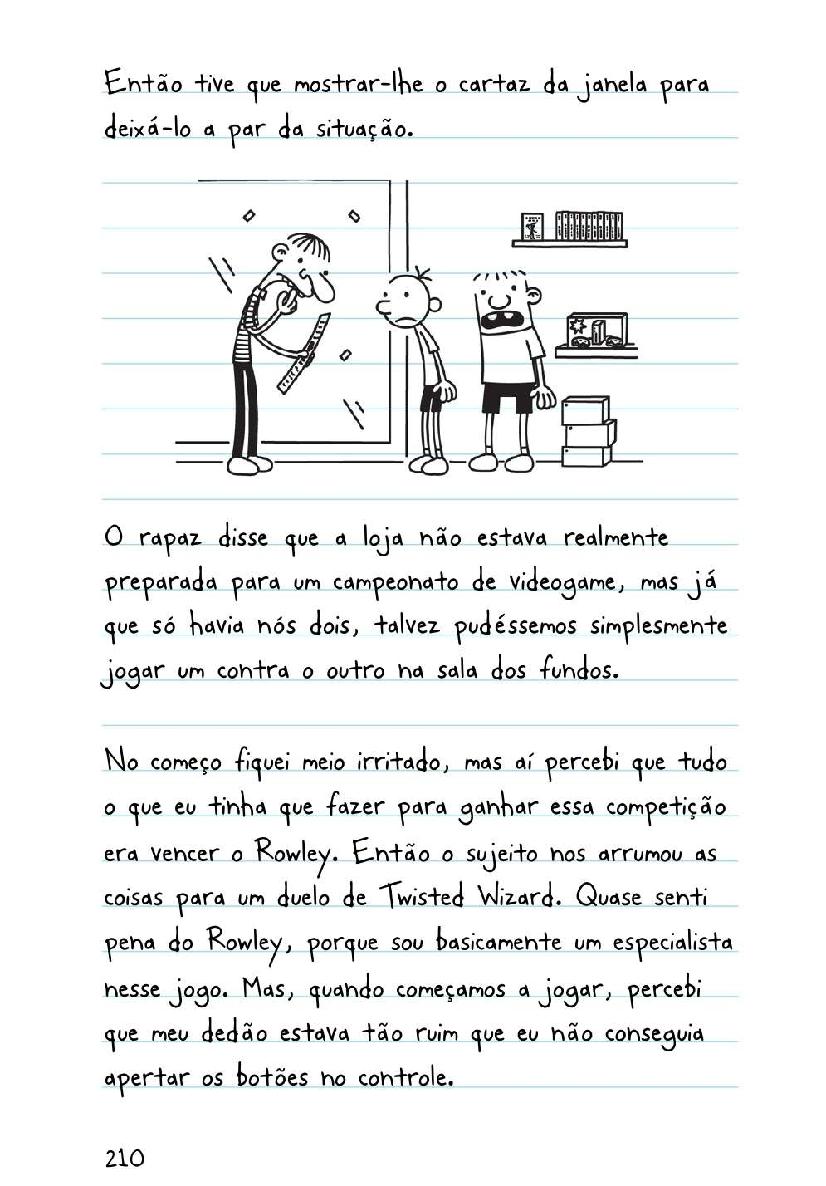 Então tive que mostrar-lhe o cartaz da janela para
deixá-lo a par da situação.
O rapaz disse que a loja não estava realmente
preparada para um campeonato de videogame, mas já
que só havia nós dois, talvez pudéssemos simplesmente
jogar um contra o outro na sala dos fundos.
No começo fiquei meio irritado, mas aí percebi que tudo
o que eu tinha que fazer para ganhar essa competição
era vencer o Rowley. Então o sujeito nos arrumou as
coisas para um duelo de Twisted Wizard. Quase senti
pena do Rowley, porque sou basicamente um especialista
nesse jogo. Mas, quando começamos a jogar, percebi
que meu dedão estava tão ruim que eu não conseguia
apertar os botões no controle.
210